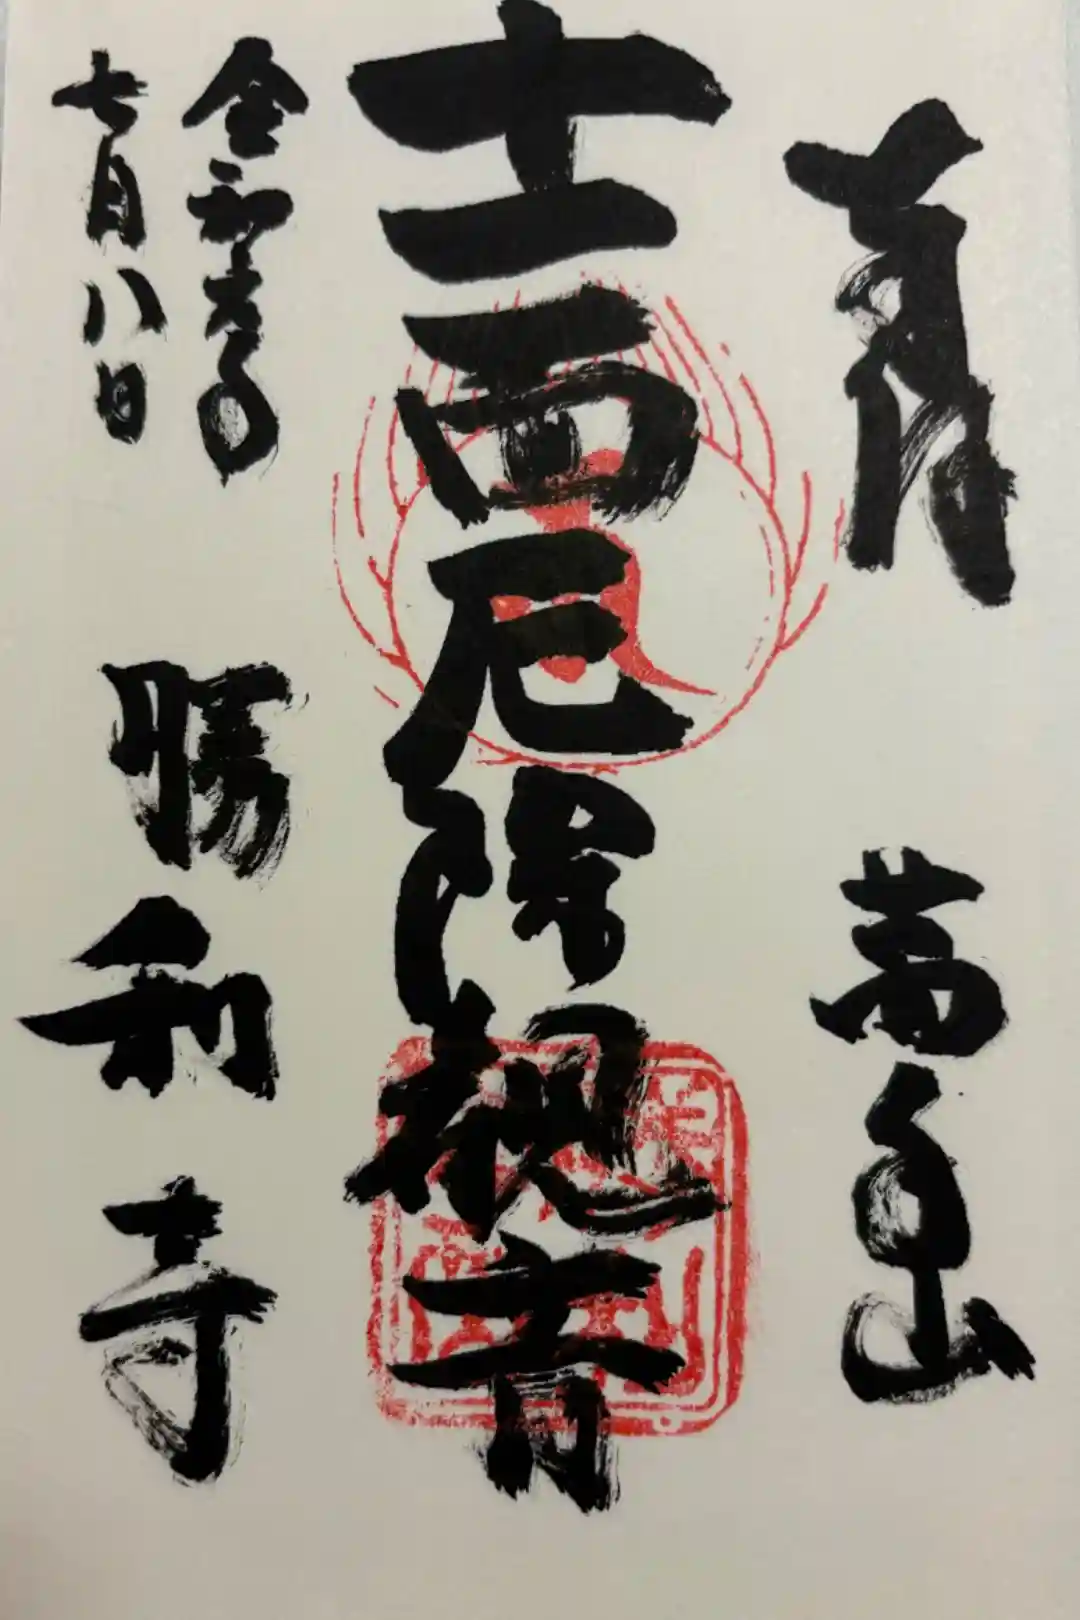 奉拝
萬年山
十一面厄除観音
令和元年
七月八日
勝利寺